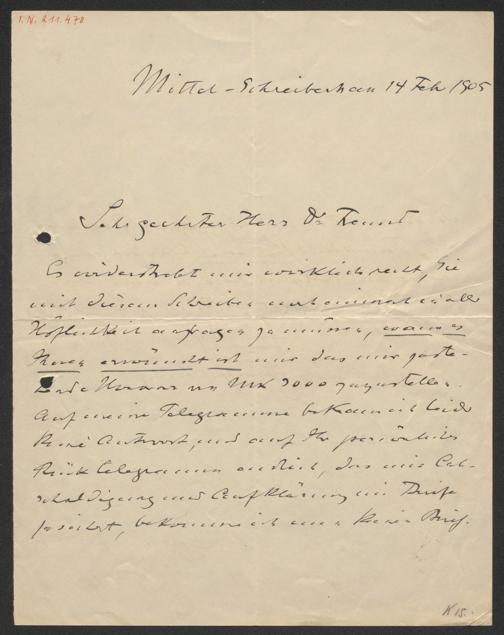 I. N. 211.478
Mittel-Schreiberhau 14 Feb 1905
Sehr geehrter Herr Dr
Es widerstrebt mir wirklich recht, Sie
mit diesem Schreiben noch einmal in aller
Höflichkeit anfragen zu müssen, wann es
Ihnen erwünscht ist mir das mir zuste-
hende Honorar von Mk zuzustellen.
Auf meine Telegramme bekam ich leider
keine Antwort, und auf Ihr persönliches
Rück telegramm endlich, das mir Ent-
schuldigung und Aufklärung im Briefe
zusichert, bekomme ich nun keinen Brief.
K 15.